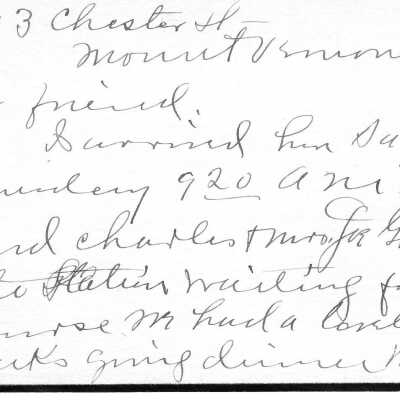 3 Chester St
Mount Vernon
friend.
I arrived here Sa
9 20 AM
nd Charles + Mrs.
Station waiting f
urse we had a lovel
ks giving dinner